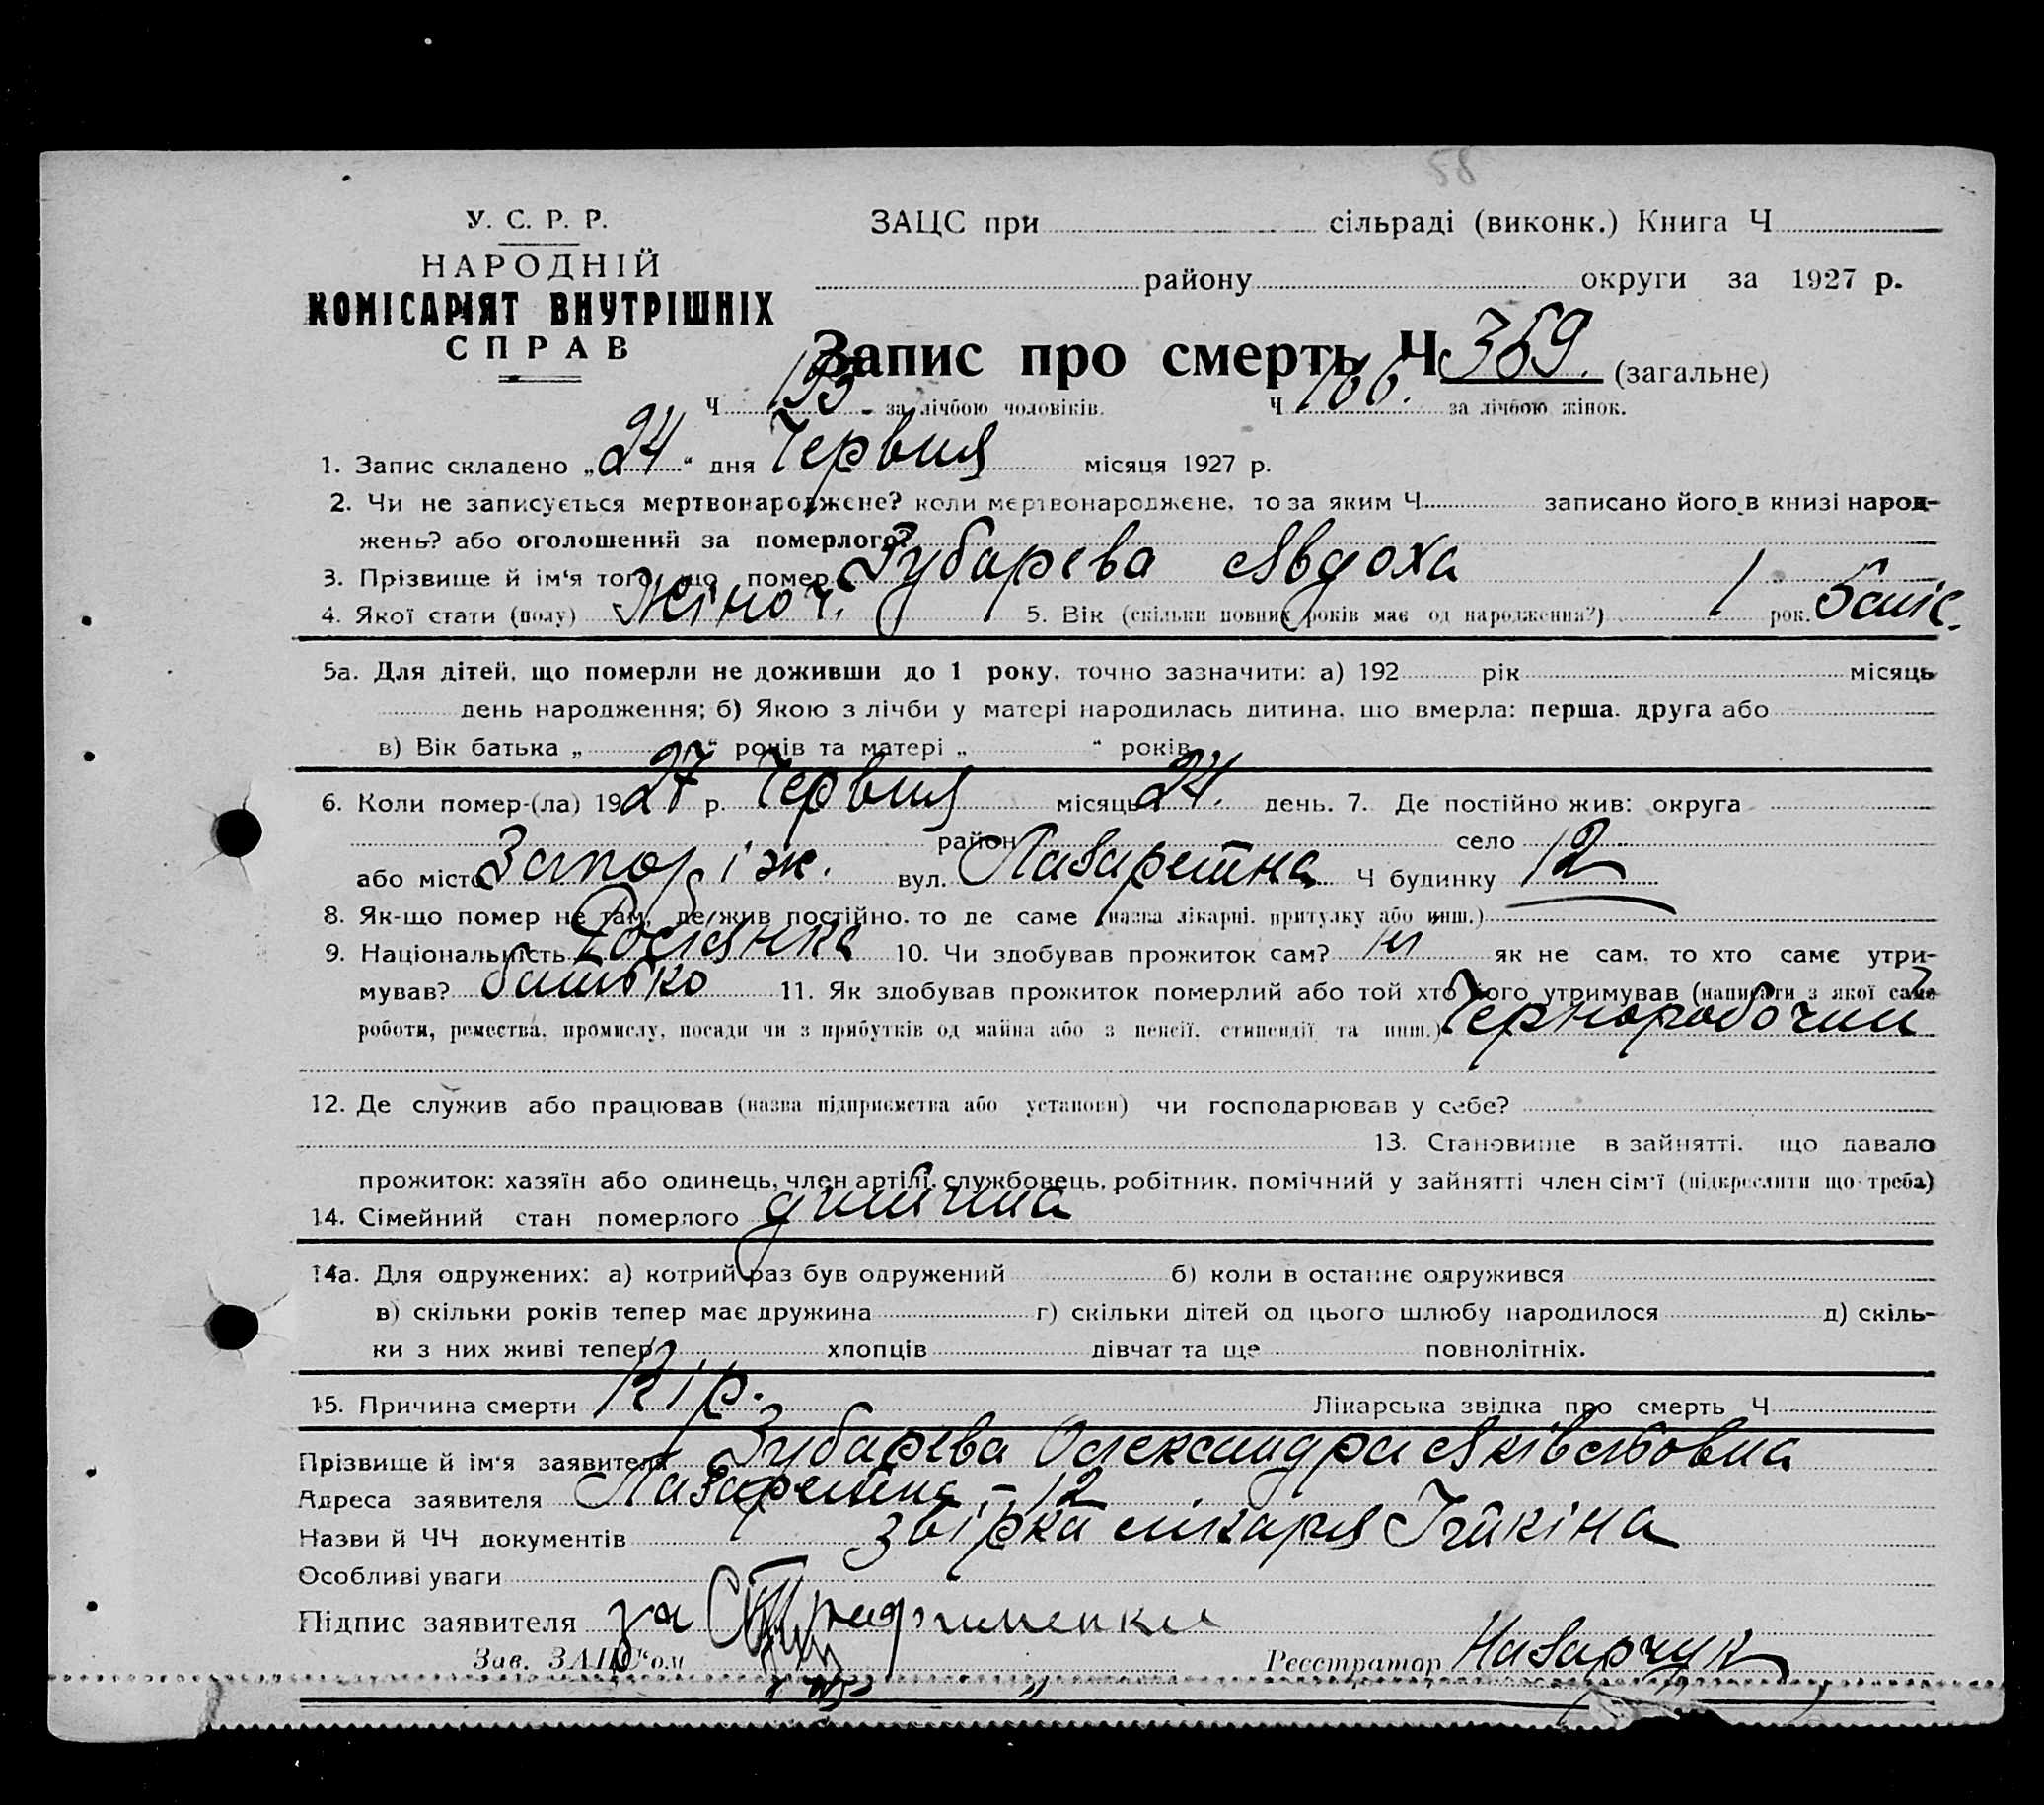 58
У. С. Р. Р.
НАРОДНІЙ
КОМІСАРІЯТ ВНУТРІШНІХ
СПРАВ
ЗАЦС при сільраді (виконк.) Книга Ч
району округи за 1927 р.
Запис про смерть Ч 359. (загальне)
Ч 193 за лічбою чоловіків. Ч 166. за лічбою жінок.
1. Запис складено „24“ дня Червня місяця 1927 р.
2. Чи не записується мертвонароджене? коли мертвонароджене, то за яким Ч записано його в книзі народ-
жень? або оголошений за померлого?
3. Прізвище й ім'я того, що помер Зубарева Явдоха
4. Якої стати (полу) Жіноч. 5. Вік (скільки повних років має од народження?) 1 рок. 5 міс.
5а. Для дітей, що померли не доживши до 1 року, точно зазначити: а) 192 рік місяць
день народження; б) Якою з лічби у матері народилась дитина, що вмерла: перша, друга або
в) Вік батька „ “ років та матері „ “ років
6. Коли помер-(ла) 1927 р. Червня місяць 24. день. 7. Де постійно жив: округа
район село
або місто Запоріж. вул. Лазаретна Ч будинку 12
8. Як-що помер не там, де жив постійно, то де саме (назва лікарні, притулку або инш.)
9. Національність Росіянка 10. Чи здобував прожиток сам? ні як не сам, то хто саме утри-
мував? батько 11. Як здобував прожиток померлий або той хто його утримував (написати з якої саме
роботи, ремества, промислу, посади чи з прибутків од майна або з пенсії, стипендії та инш.) Чернорабочий
12. Де служив або працював (назва підприємства або установи) чи господарював у себе?
13. Становище в зайнятті, що давало
прожиток: хазяїн або одинець, член артілі, службовець, робітник, помічний у зайнятті член сім'ї (підкреслити що треба)
14. Сімейний стан померлого дитина
14а. Для одружених: а) котрий раз був одружений б) коли в останнє одружився
в) скільки років тепер має дружина г) скільки дітей од цього шлюбу народилося д) скіль-
ки з них живі тепер хлопців дівчат та ще повнолітніх.
15. Причина смерти Кір. Лікарська звідка про смерть Ч
Прізвище й ім'я заявителя Зубарева Олександра Яківлівовна
Адреса заявителя Лазаретна - 12
Назви й ЧЧ документів звірка лікаря
Особливі уваги
Підпис заявителя за
Зав. ЗАЦС'ом Реєстратор Назарчук